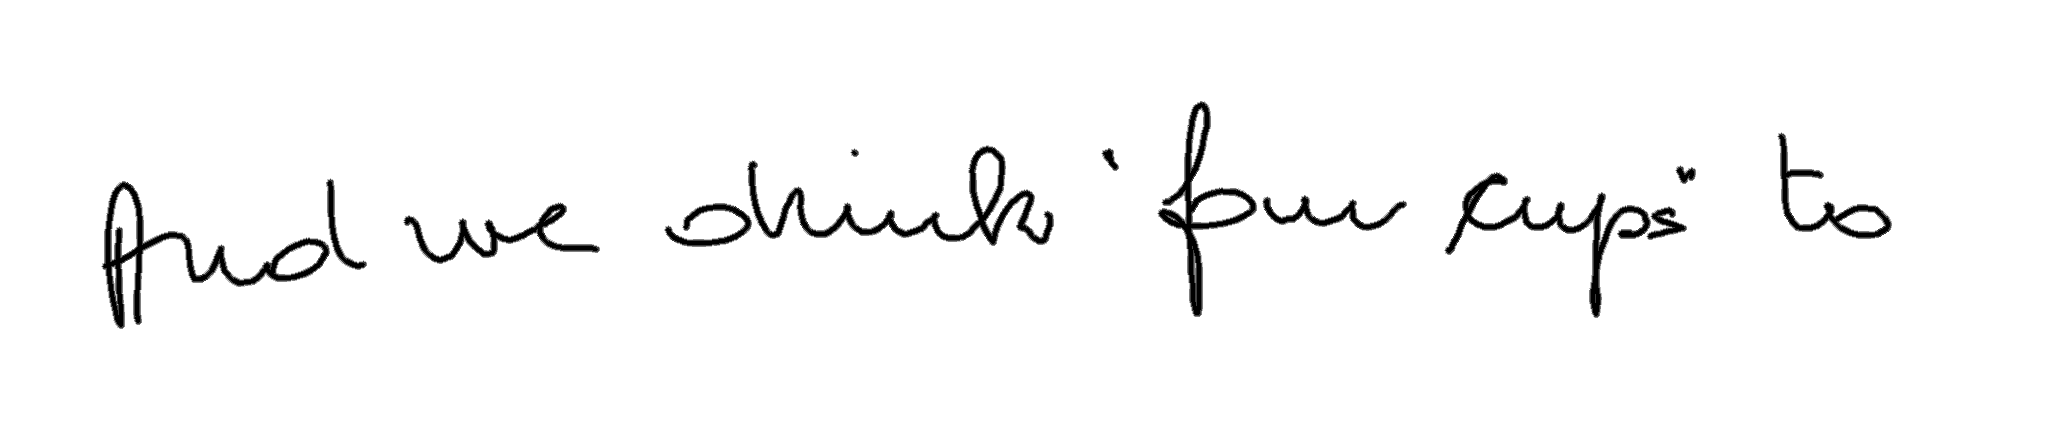 And we drink "four cups" to